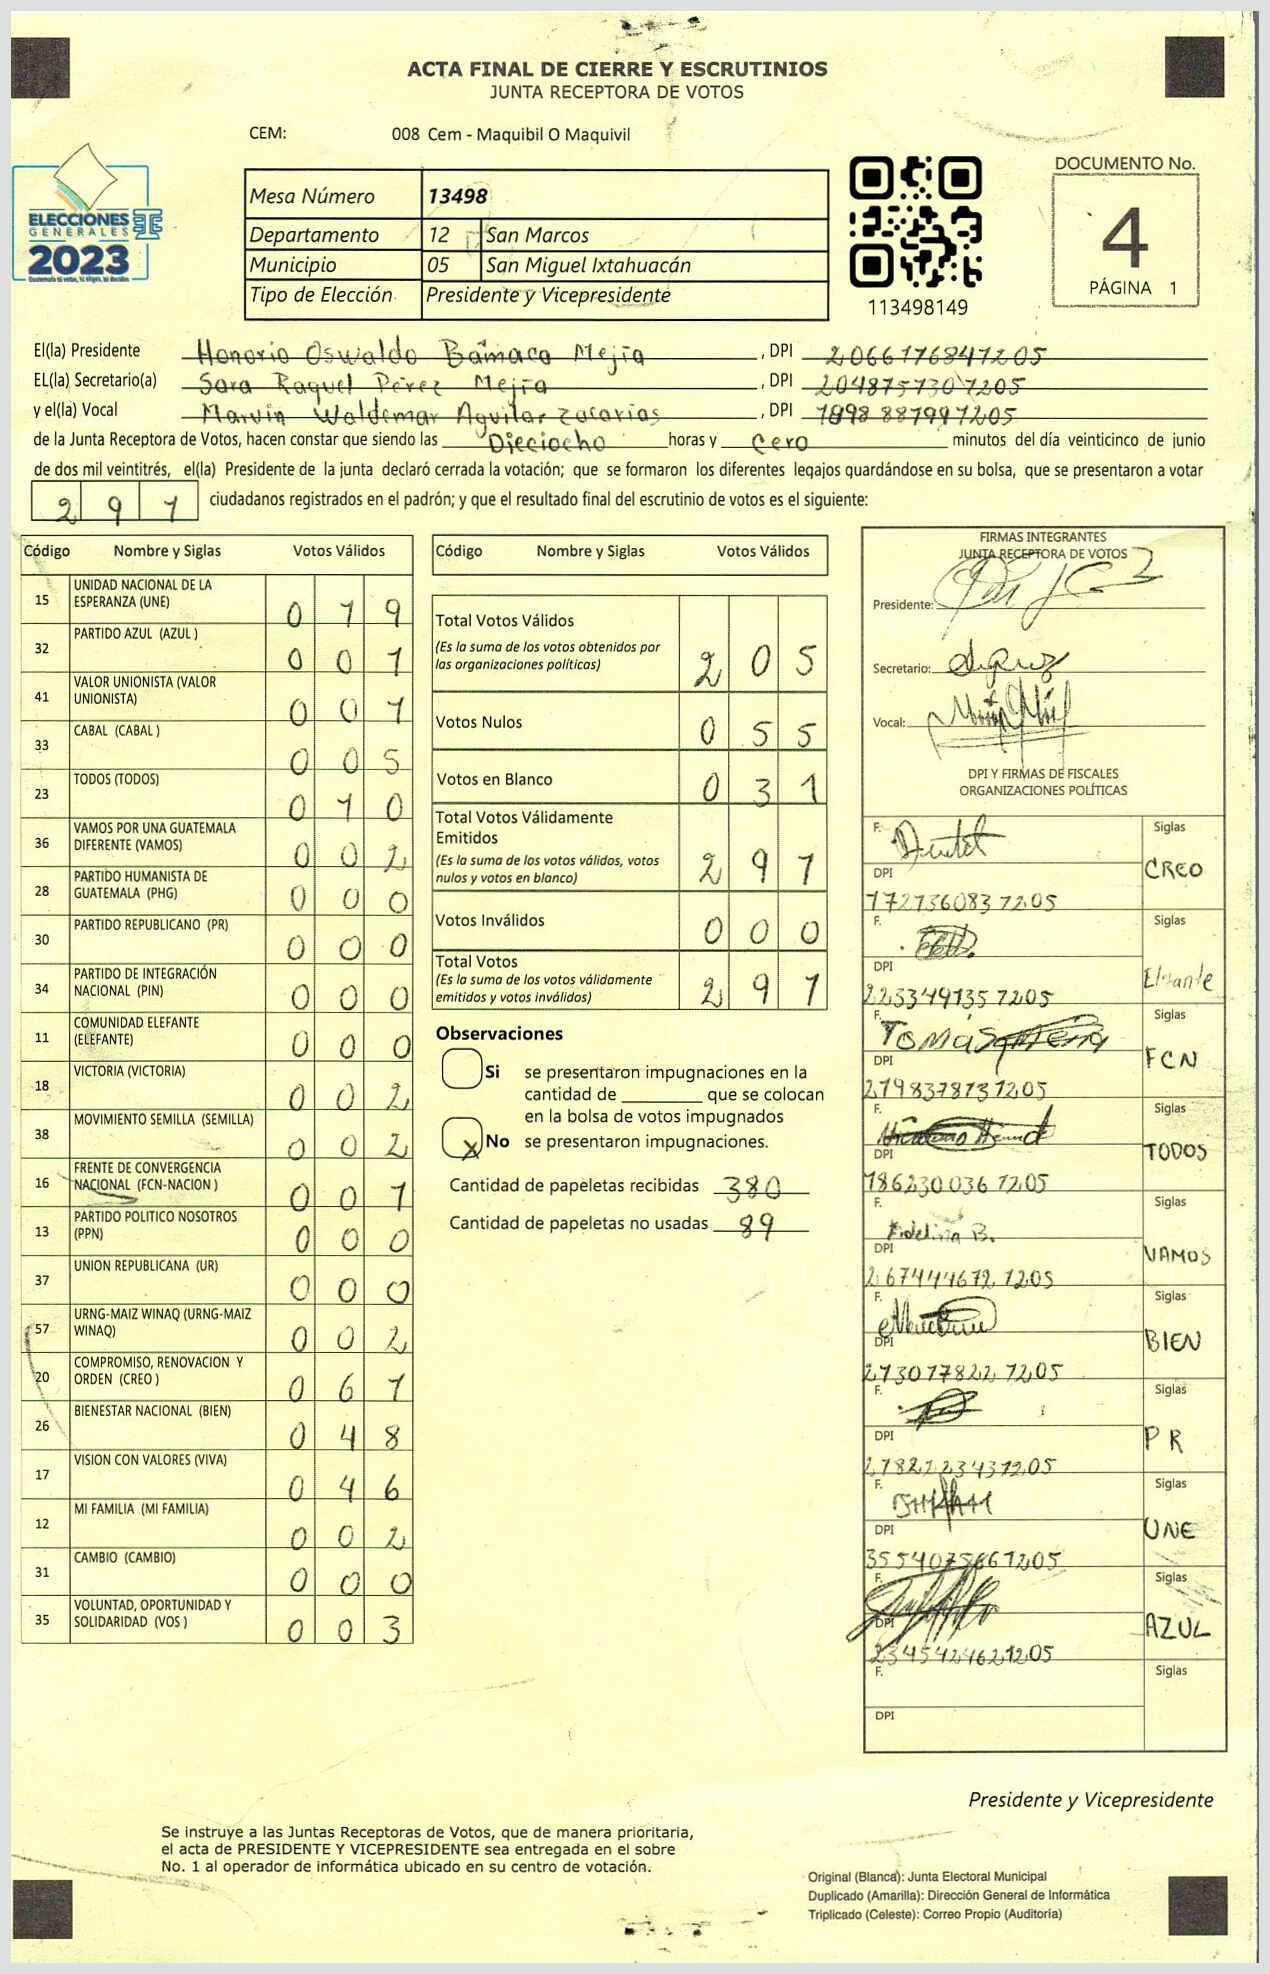 ACTA FINAL DE CIERRE Y ESCRUTINIOS
JUNTA RECEPTORA DE VOTOS
CEM: 008 Cem - Maquibil O Maquivil
ELECCIONES
GENERALES
2023
Mesa Número 13498
Departamento 12 San Marcos
Municipio 05 San Miguel Ixtahuacán
Tipo de Elección Presidente y Vicepresidente
113498149
DOCUMENTO No.
4
PÁGINA 1
El(la) Presidente Honorio Oswaldo Bámaca Mejía, DPI 2066176847205
EL(la) Secretario(a) Sara Raquel Pérez Mejía, DPI 2048757307205
y el(la) Vocal Marvin Waldemar Aguilar Zacarías, DPI 1898 88799 1205
de la Junta Receptora de Votos, hacen constar que siendo las Dieciocho horas y cero minutos del día veinticinco de junio
de dos mil veintitrés, el(la) Presidente de la junta declaró cerrada la votación; que se formaron los diferentes legajos quardándose en su bolsa, que se presentaron a votar
291 ciudadanos registrados en el padrón; y que el resultado final del escrutinio de votos es el siguiente:
Código Nombre y Siglas Votos Válidos
15 UNIDAD NACIONAL DE LA ESPERANZA (UNE) 019
32 PARTIDO AZUL (AZUL ) 001
41 VALOR UNIONISTA (VALOR UNIONISTA) 001
33 CABAL (CABAL ) 005
23 TODOS (TODOS) 010
36 VAMOS POR UNA GUATEMALA DIFERENTE (VAMOS) 002
28 PARTIDO HUMANISTA DE GUATEMALA (PHG) 000
30 PARTIDO REPUBLICANO (PR) 000
34 PARTIDO DE INTEGRACIÓN NACIONAL (PIN) 000
11 COMUNIDAD ELEFANTE (ELEFANTE) 000
18 VICTORIA (VICTORIA) 002
38 MOVIMIENTO SEMILLA (SEMILLA) 002
16 FRENTE DE CONVERGENCIA NACIONAL (FCN-NACION ) 001
13 PARTIDO POLITICO NOSOTROS (PPN) 000
37 UNION REPUBLICANA (UR) 000
57 URNG-MAIZ WINAQ (URNG-MAIZ WINAQ) 002
20 COMPROMISO, RENOVACION Y ORDEN (CREO ) 061
26 BIENESTAR NACIONAL (BIEN) 048
17 VISION CON VALORES (VIVA) 046
12 MI FAMILIA (MI FAMILIA) 002
31 CAMBIO (CAMBIO) 000
35 VOLUNTAD, OPORTUNIDAD Y SOLIDARIDAD (VOS ) 003
Código Nombre y Siglas Votos Válidos
Total Votos Válidos 205
(Es la suma de los votos obtenidos por
las organizaciones políticas)
Votos Nulos 055
Votos en Blanco 031
Total Votos Válidamente
Emitidos 291
(Es la suma de los votos válidos, votos
nulos y votos en blanco)
Votos Inválidos 000
Total Votos 291
(Es la suma de los votos válidamente
emitidos y votos inválidos)
Observaciones
Si se presentaron impugnaciones en la
cantidad de ________ que se colocan
en la bolsa de votos impugnados
X No se presentaron impugnaciones.
Cantidad de papeletas recibidas 380
Cantidad de papeletas no usadas 89
FIRMAS INTEGRANTES
JUNTA RECEPTORA DE VOTOS
Presidente:
Secretario:
Vocal:
DPI Y FIRMAS DE FISCALES
ORGANIZACIONES POLÍTICAS
F. Siglas
CREO
DPI
1727360837205
F. Siglas
DPI
2233491357205
F. Tomás Siglas
FCN
DPI
2198378731205
F. Siglas
TODOS
DPI
1862300361205
F. Fidelina B. Siglas
VAMOS
DPI
2674446721205
F. Siglas
BIEN
DPI
2730778221205
F. Siglas
PR
DPI
2782123431205
F. Siglas
UNE
DPI
F. Siglas
AZUL
DPI
2345424621205
F. Siglas
DPI
Presidente y Vicepresidente
Se instruye a las Juntas Receptoras de Votos, que de manera prioritaria,
el acta de PRESIDENTE Y VICEPRESIDENTE sea entregada en el sobre
No. 1 al operador de informática ubicado en su centro de votación.
Original (Blanca): Junta Electoral Municipal
Duplicado (Amarilla): Dirección General de Informática
Triplicado (Celeste): Correo Propio (Auditoría)